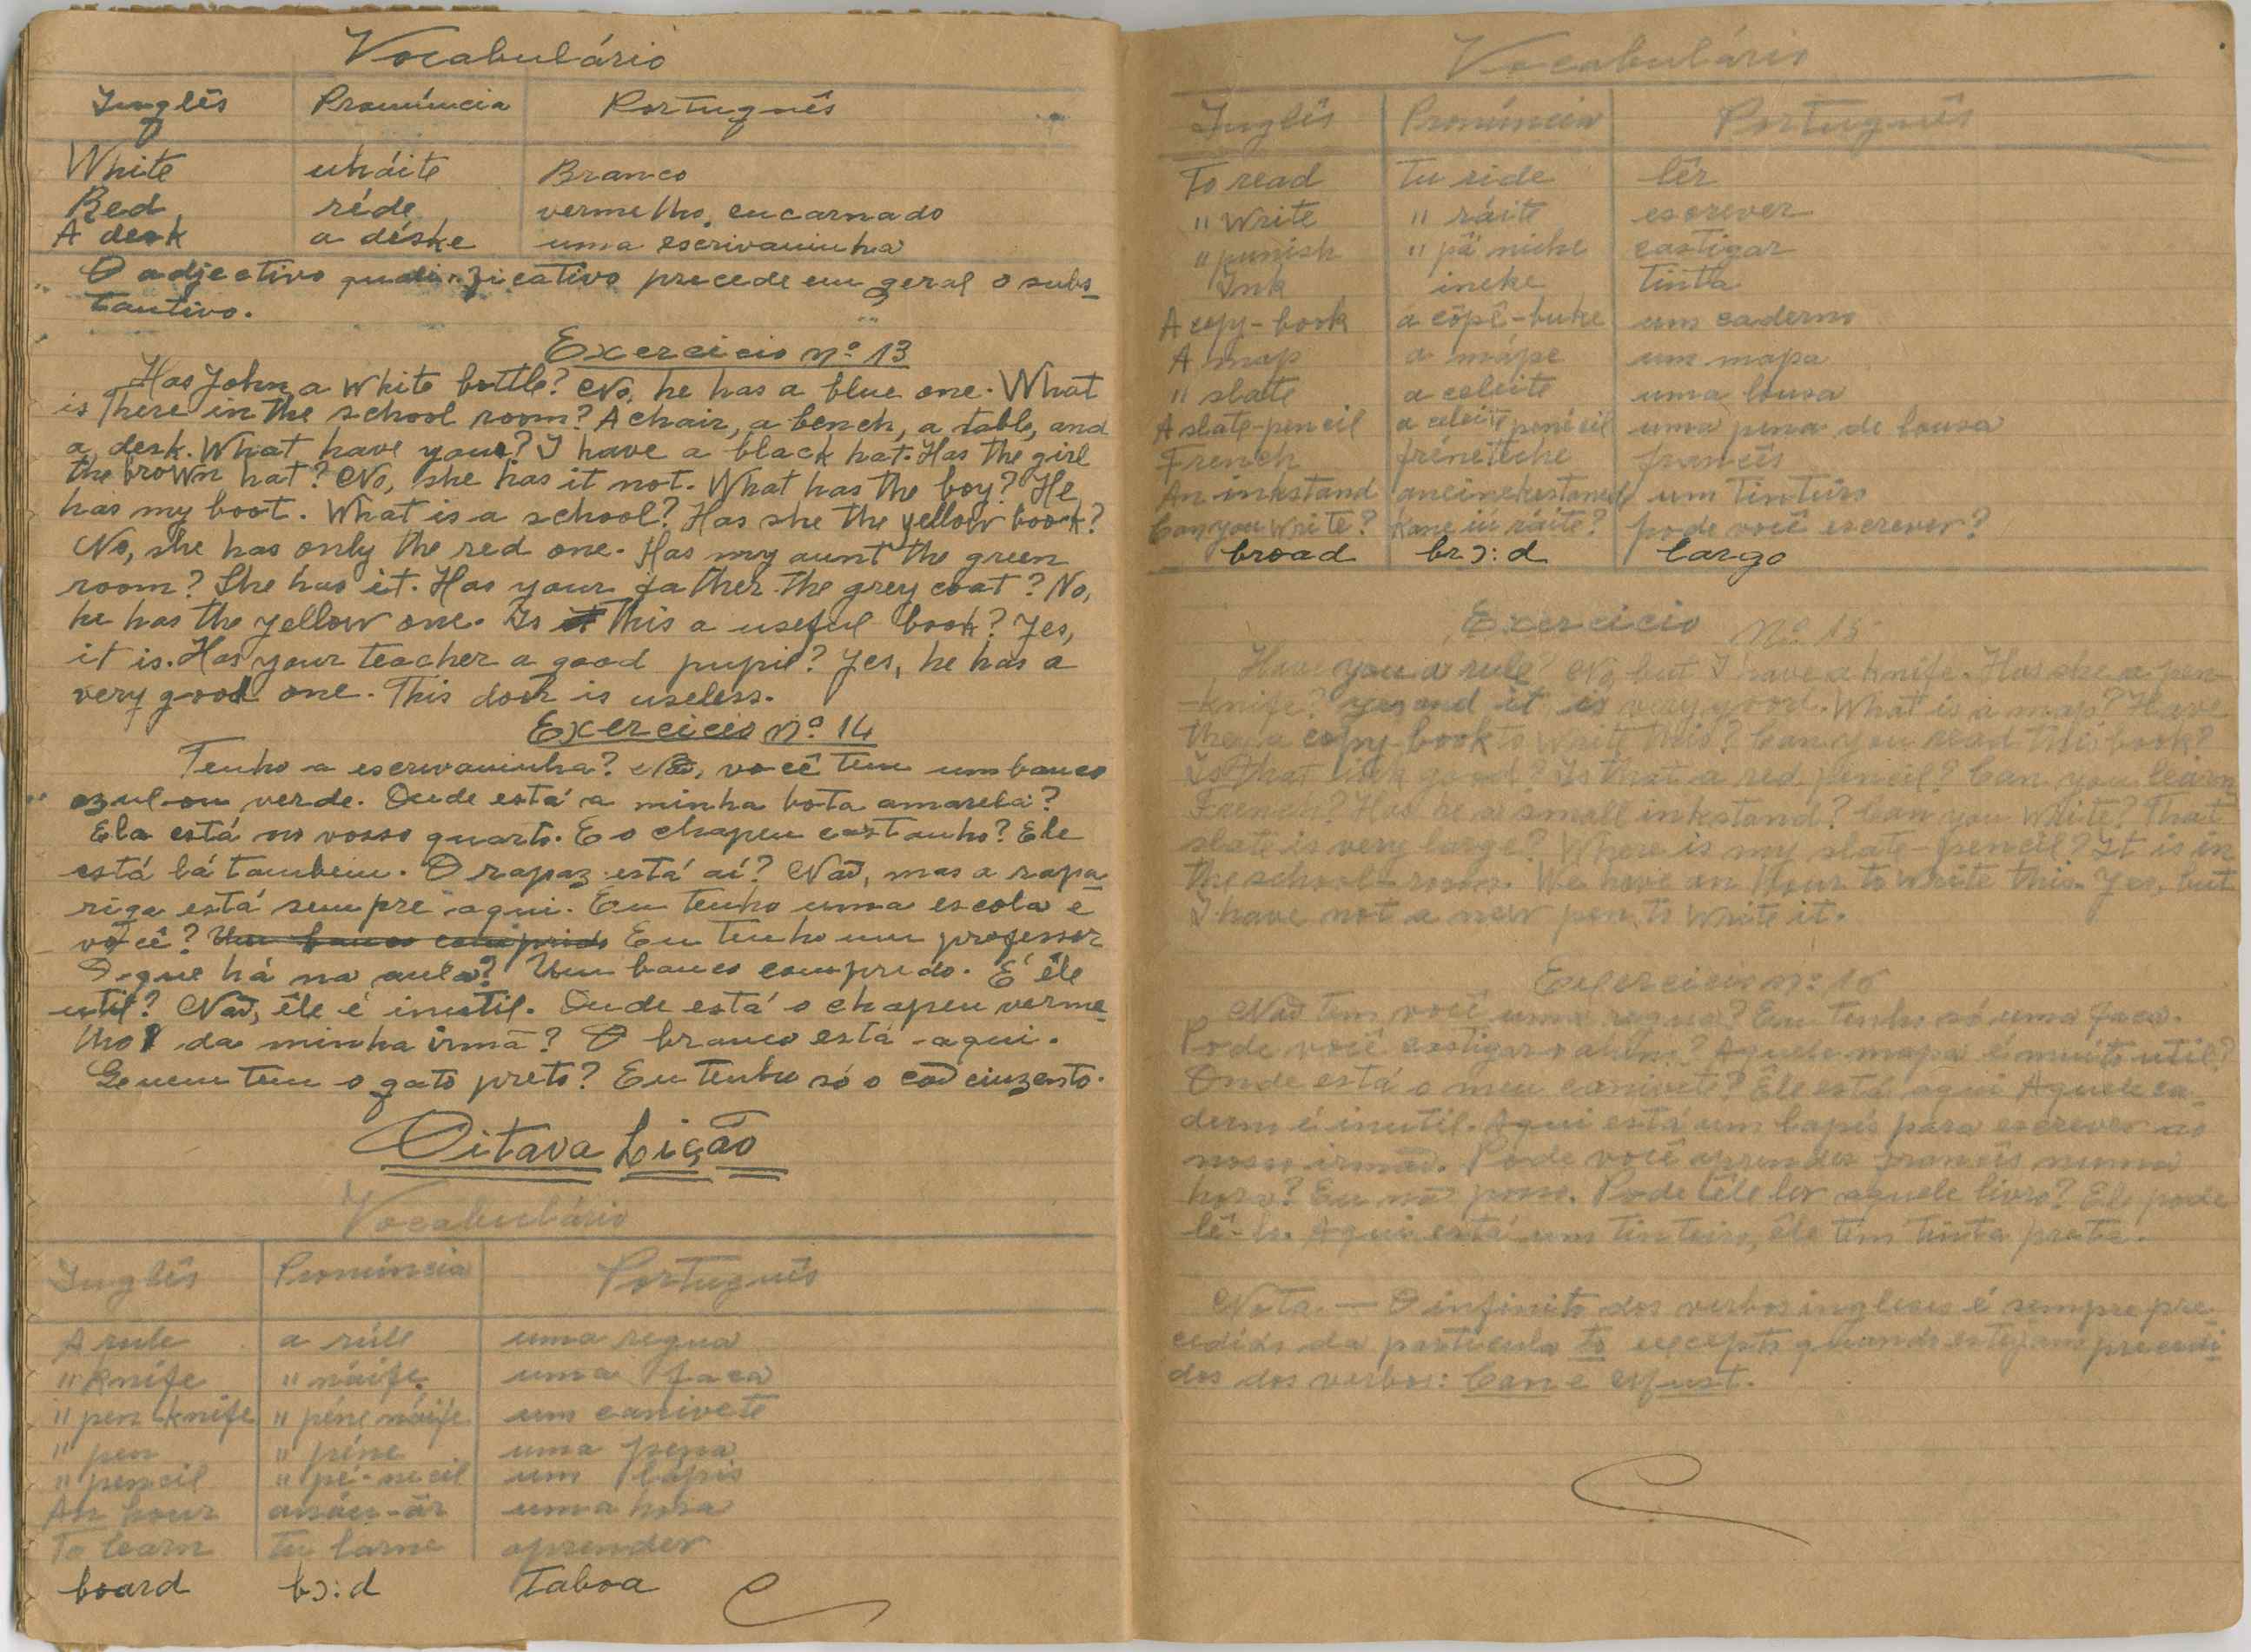 Vocabulário
Inglês Pronúncia Português
White uháite Branco
Red réde vermelho, encarnado
A desk a déske uma escrivaninha
O adjectivo precede em geral o subs-
tantivo.
Exercicio nº 13
Has John a white bottle? No, he has a blue one. What
is there in the school room? A chair, a bench, a table, and
a desk. What have you? I have a black hat. Has the girl
the brown hat? No, she has it not. What has the boy? He
has my boot. What is a school? Has she the yellow book?
No, she has only the red one. Has my aunt the green
room? She has it. Has your father the grey coat? No,
he has the yellow one. Is this a useful book? Yes,
it is. Has your teacher a good pupil? Yes, he has a
very good one. This door is useless.
Exercicio nº 14
Tenho a escrivaninha? Não, você tem um banco
azul ou verde. Onde está a minha bota amarela?
Ela está no vosso quarto. E o chapeu castanho? Ele
está lá tambem. O rapaz está aí? Não, mas a rapa-
riga está sempre aqui. Eu tenho uma escola e
você? Um banco comprido Eu tenho um professor
O que há na aula? Um banco comprido. É êle
util? Não, êle é inutil. Onde está o chapeu verme-
lho da minha irmã? O branco está aqui.
Quem tem o gato preto? Eu tenho só o cão cinzento.
Oitava Lição
Vocabulário
Inglês Pronúncia Português
A rule a rúle uma regua
" knife " náife uma faca
" pen knife " péne náife um canivete
" pen " péne uma pena
" pencil " pé-necil um lápis
An hour anáu-âr uma hora
To learn tu larne aprender
board bɔ:d Taboa
Vocabulário
Inglês Pronúncia Português
To read tu ride lêr
" write " ráite escrever
" punish " pâ niche castigar
Ink ineke tinta
A copy-book a cópê-buke um caderno
A map a mápe um mapa
" slate a celeite uma lousa
A slate-pencil a celeite pénecil uma pena de lousa
French fréneteche francês
An inkstand um tinteiro
Can you write? Kane iú ráite? pode você escrever?
broad brɔ:d largo
Exercicio Nº 15
Have you a rule No, but I have a knife. Has she a pen-
=knife? yes, and it is very good. What is a map? Have
they a copy-book to write this? Can you read this book?
Is that ink good? Is that a red pencil? Can you learn
French? Has he a small inkstand? Can you write? That
slate is very large? Where is my slate-pencil? It is in
the school-room. We have an hour to write this. Yes, but
I have not a new pen to write it.
Exercicio nº 16
Não tem você uma regua? Eu tenho só uma faca.
Pode você castigar o aluno? Aquele mapa é muito util?
Onde está o meu canivete? Êle está aqui Aquele ca-
derno é inutil. Aqui está um lapis para escrever ao
nosso irmão. Pode você aprender francês numa
hora? Eu não posso. Pode êle ler aquele livro? Ele pode
lê-lo. Aqui está um tinteiro, êle tem tinta preta.
Nota. — O infinito dos verbos ingleses é sempre pre-
cedido da particula to excepto quando estejam precedi-
dos dos verbos: Can e